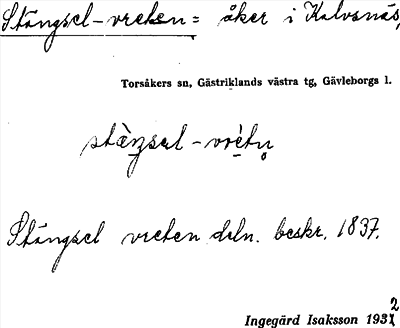 Stängsel-vreten = åker i Kalvsnäs,
Torsåkers sn, Gästriklands västra tg, Gävleborgs l.
stàŋsəl-vrètn̥
Stängsel vreten deln. beskr. 1837.
Ingegärd Isaksson 1932